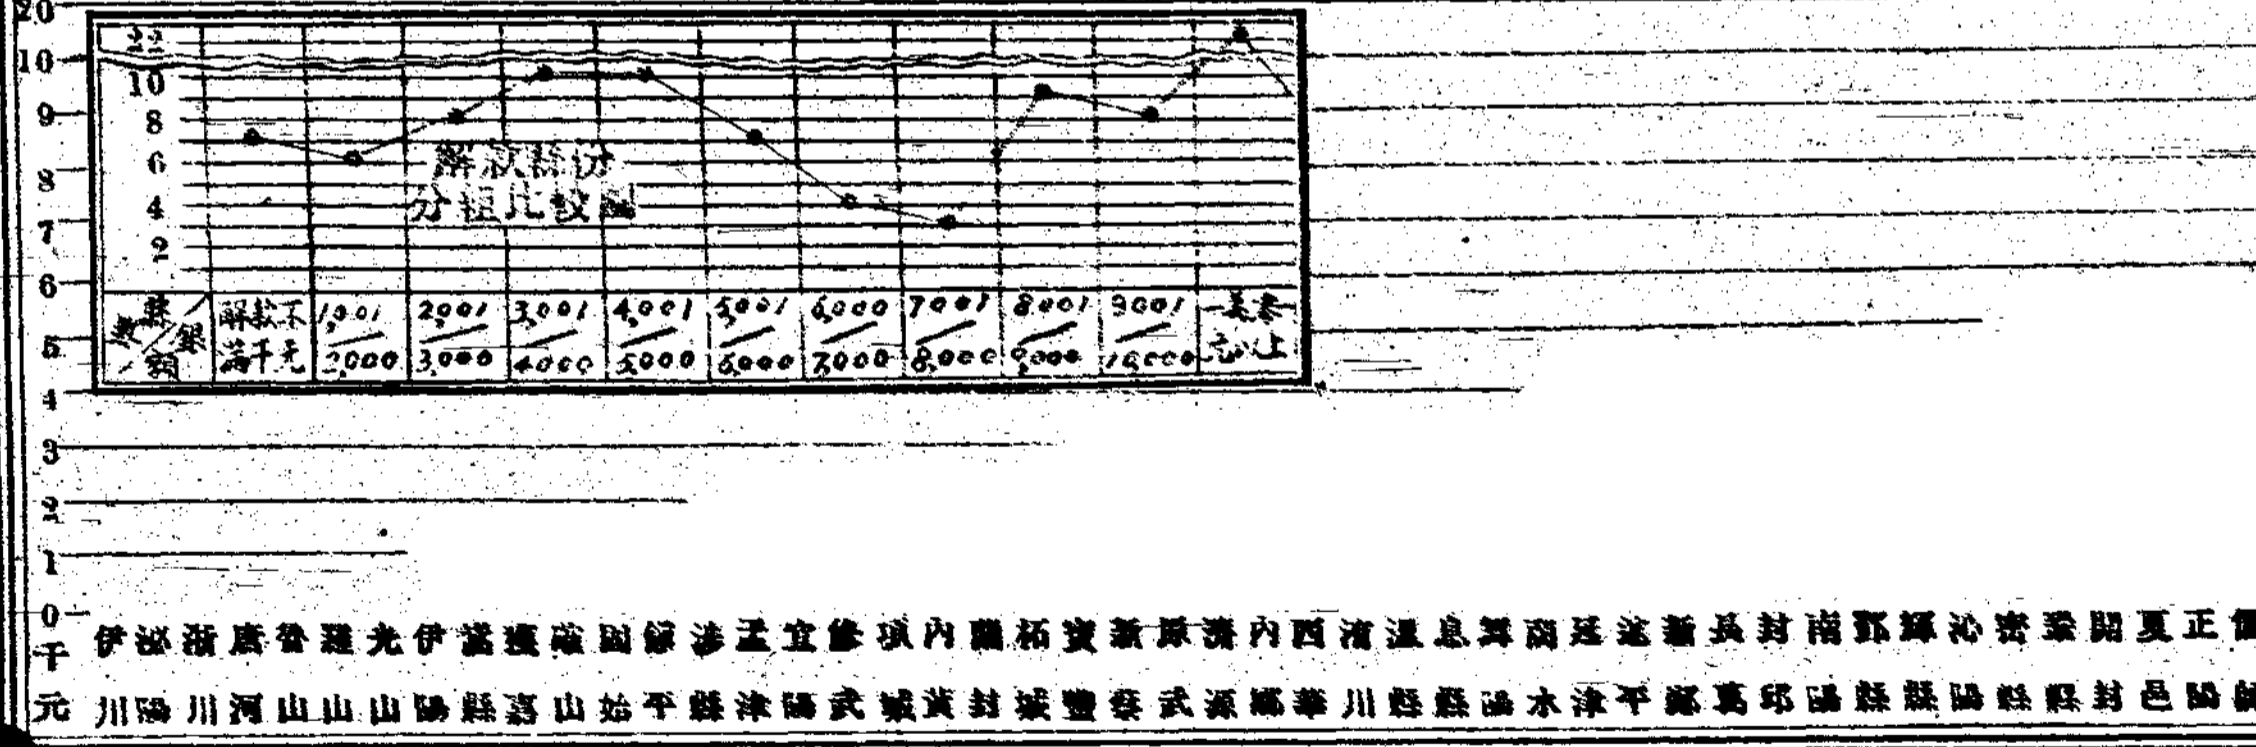 20
10
9
8
7
6
5
4
3
2
1
0
千元
10
8
6
4
2
解款縣份
分組比較圖
縣數 銀額
解款不滿千元
1,001/2,000
2,001/3,000
3,001/4000
4,001/5,000
5,001/6,000
6,000/7,000
7001/8,000
8001/9,000
9001/10,000
以上
伊川
泌陽
淅川
唐河
魯山
羅山
光山
伊陽
固始
涉縣
孟津
宜陽
修武
項城
內黃
蘭封
柘城
寶豐
新蔡
原武
濟源
內鄉
西華
淯川
溫縣
息縣
舞陽
商水
延津
遂平
新鄭
長葛
封邱
南陽
鄧縣
輝縣
沁陽
密縣
開封
夏邑
正陽